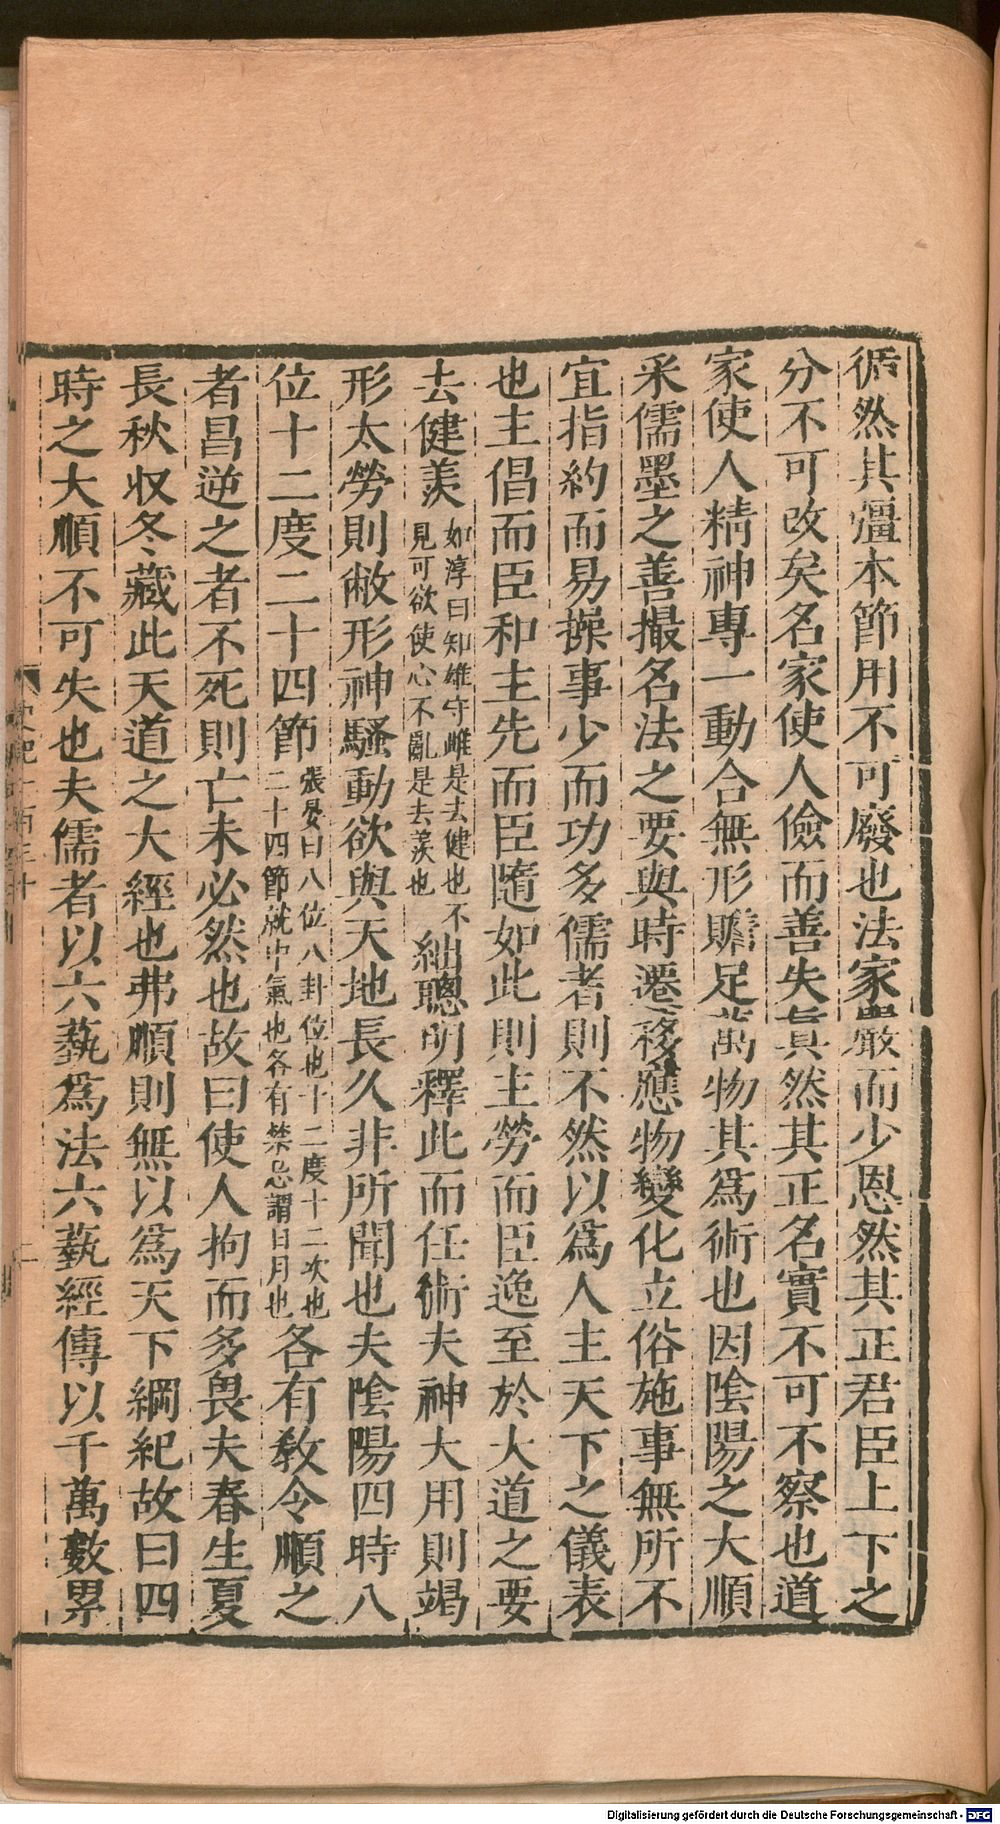 循然其彊本節用不可廢也法家嚴而少恩然其正君臣上下之
分不可改矣名家使人儉而善失眞然其正名實不可不察也道
家使人精神專一動合無形贍足萬物其爲術也因陰陽之大順
采儒墨之善撮名法之要與時遷移應物變化立俗施事無所不
宜指約而易操事少而功多儒者則不然以爲人主天下之儀表
也主倡而臣和主先而臣隨如此則主勞而臣逸至於大道之要
去健羨如淳曰知雄守雌是去健也不見可欲使心不亂是去羨也絀聰明釋此而任術夫神大用則竭
形太勞則敝形神騷動欲與天地長久非所聞也夫陰陽四時八
位十二度二十四節張晏曰八位八卦位也十二度十二次也二十四節就中氣也各有禁忌謂日月也各有敎令順之
者昌逆之者不死則亡未必然也故曰使人拘而多畏夫春生夏
長秋収冬藏此天道之大經也弗順則無以爲天下綱紀故曰四
時之大順不可失也夫儒者以六藝爲法六藝經傳以千萬數累
史記一百三十
二
Digitalisierung gefördert durch die Deutsche Forschungsgemeinschaft - DFG